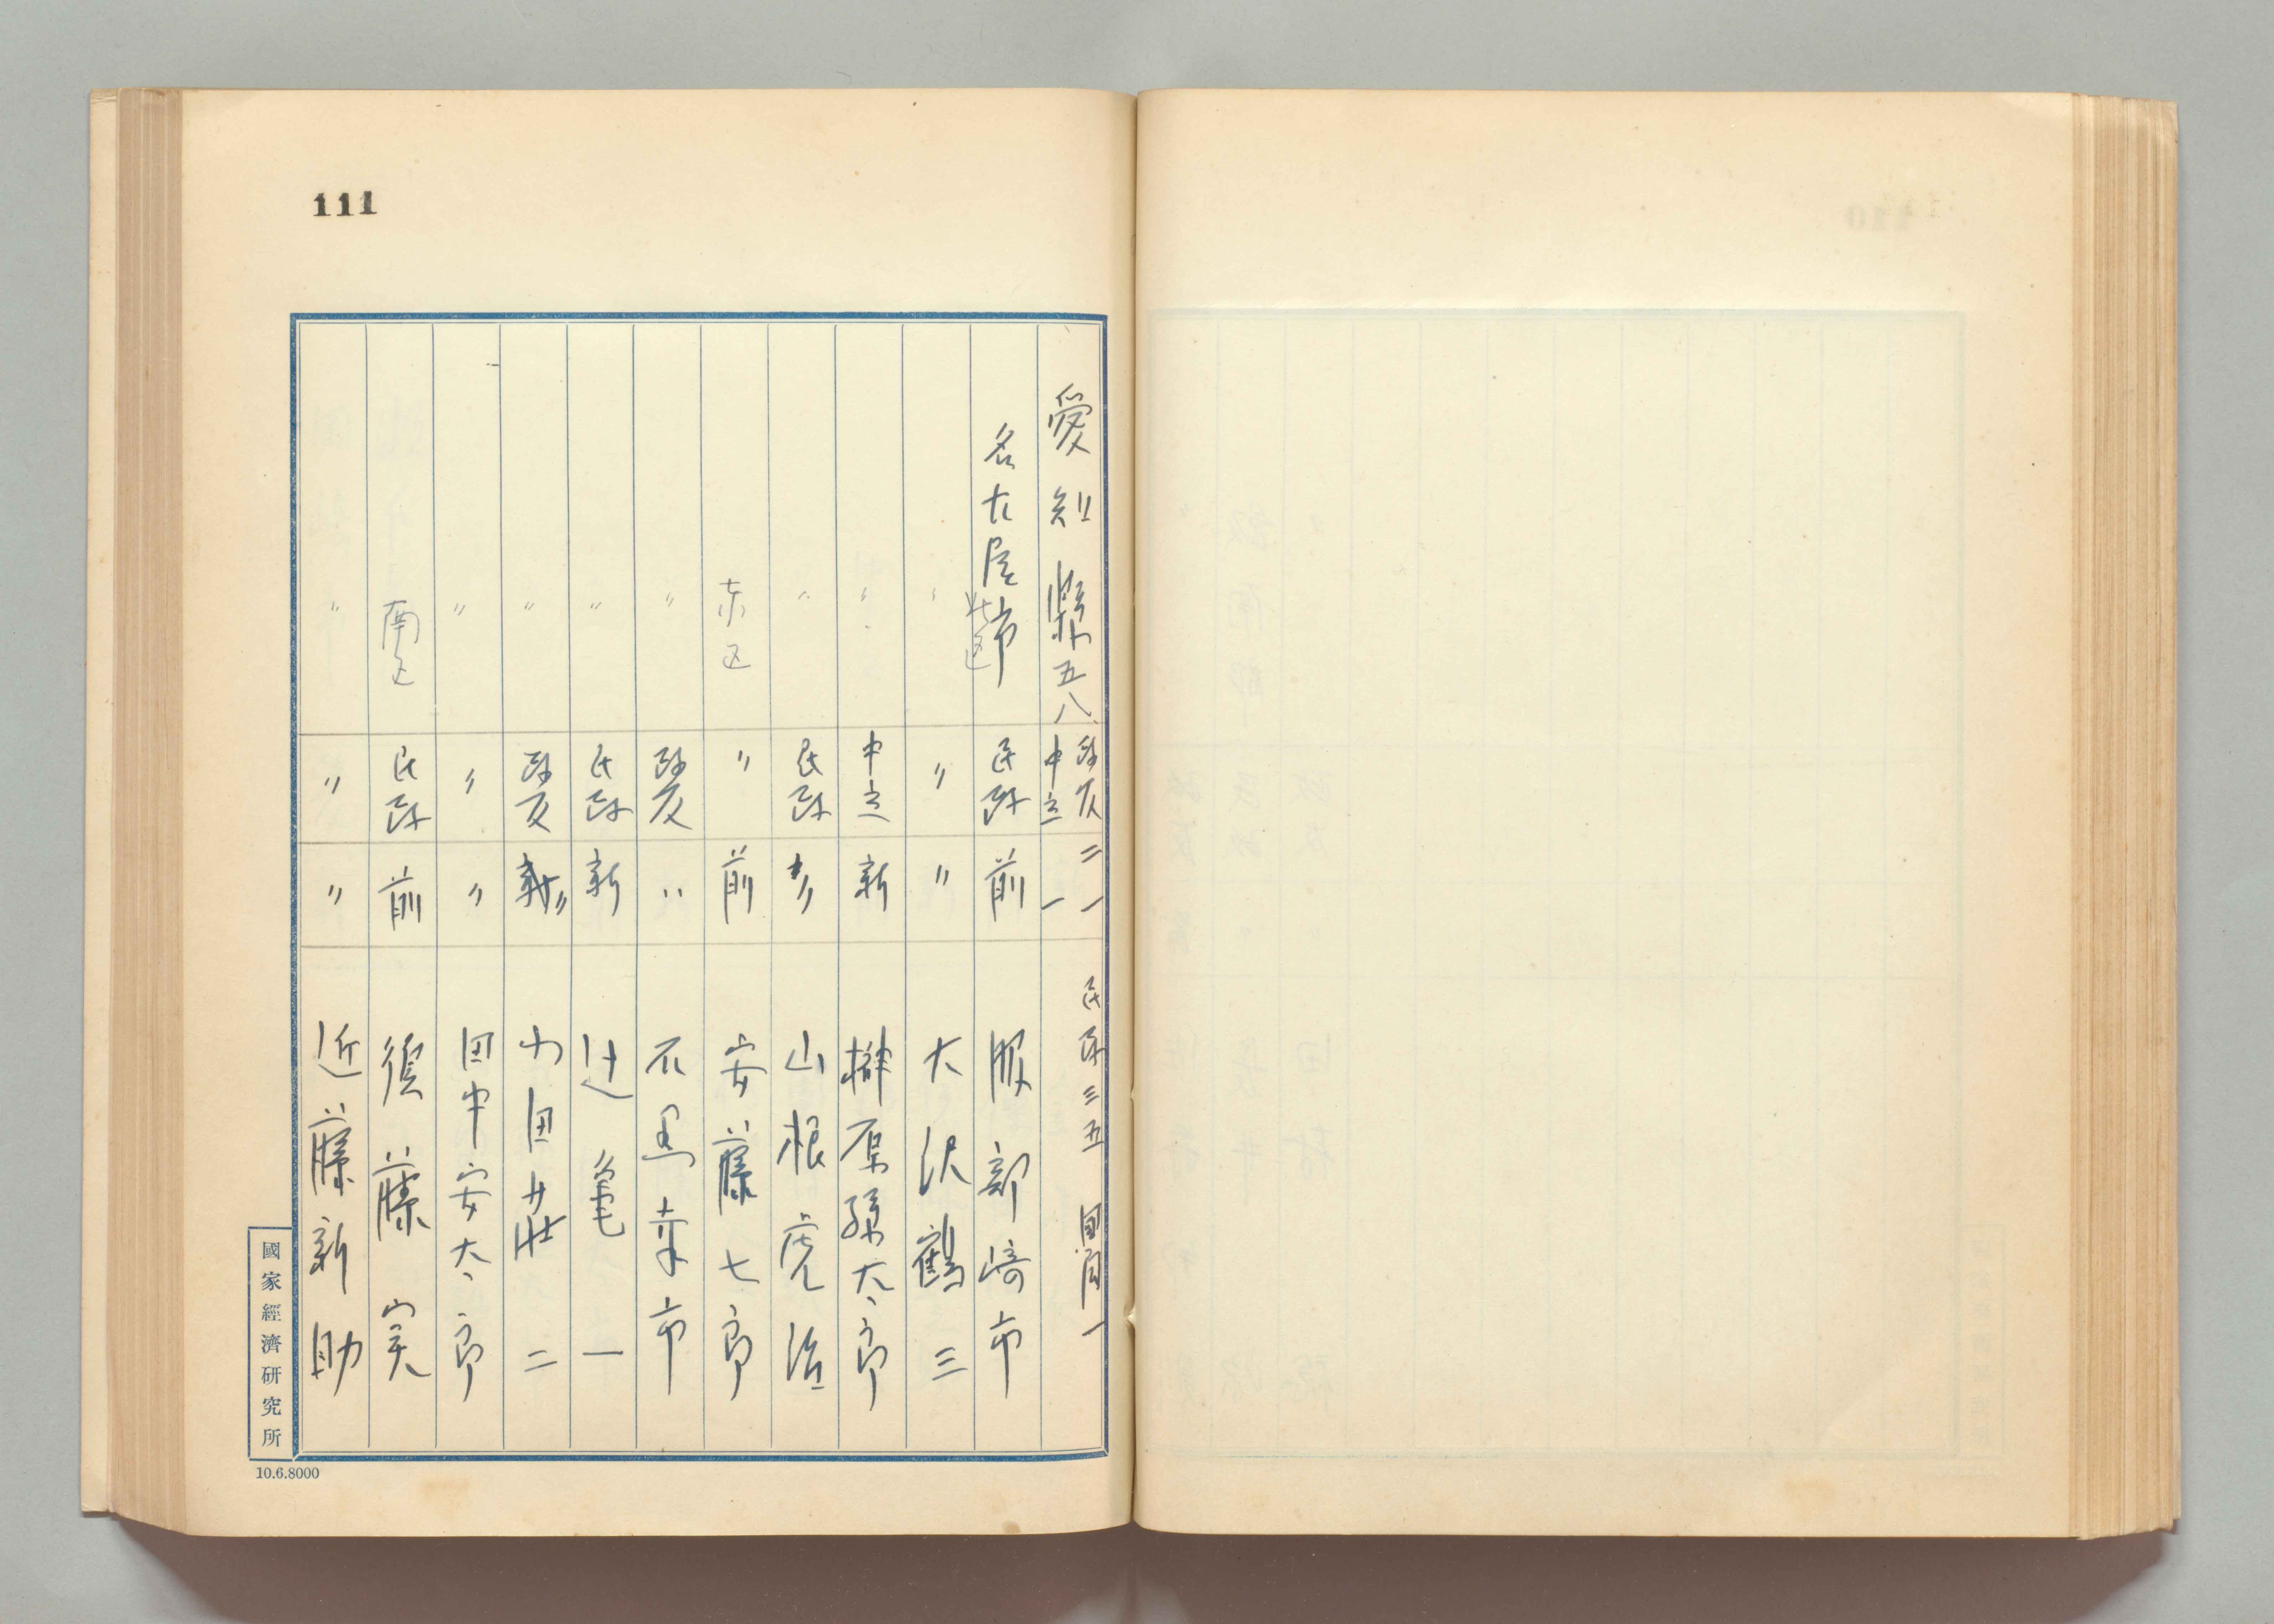 111
愛知縣五八、政友二一 中立一 民政三五 国同一
名古屋市北区 民政 前 服部崎市
〃 〃 〃 大沢鶴三
〃 中立 新 榊原孫太郎
〃 民政 〃 山根虎治
東区 〃 前 安藤七郎
〃 政友 〃 不_幸市
〃 民政 新 辻亀一
〃 政友 〃 小田荘二
〃 〃 〃 田中安太郎
南区 民政 前 後藤実
〃 〃 〃 近藤新助
國家經濟研究所
10.6.8000